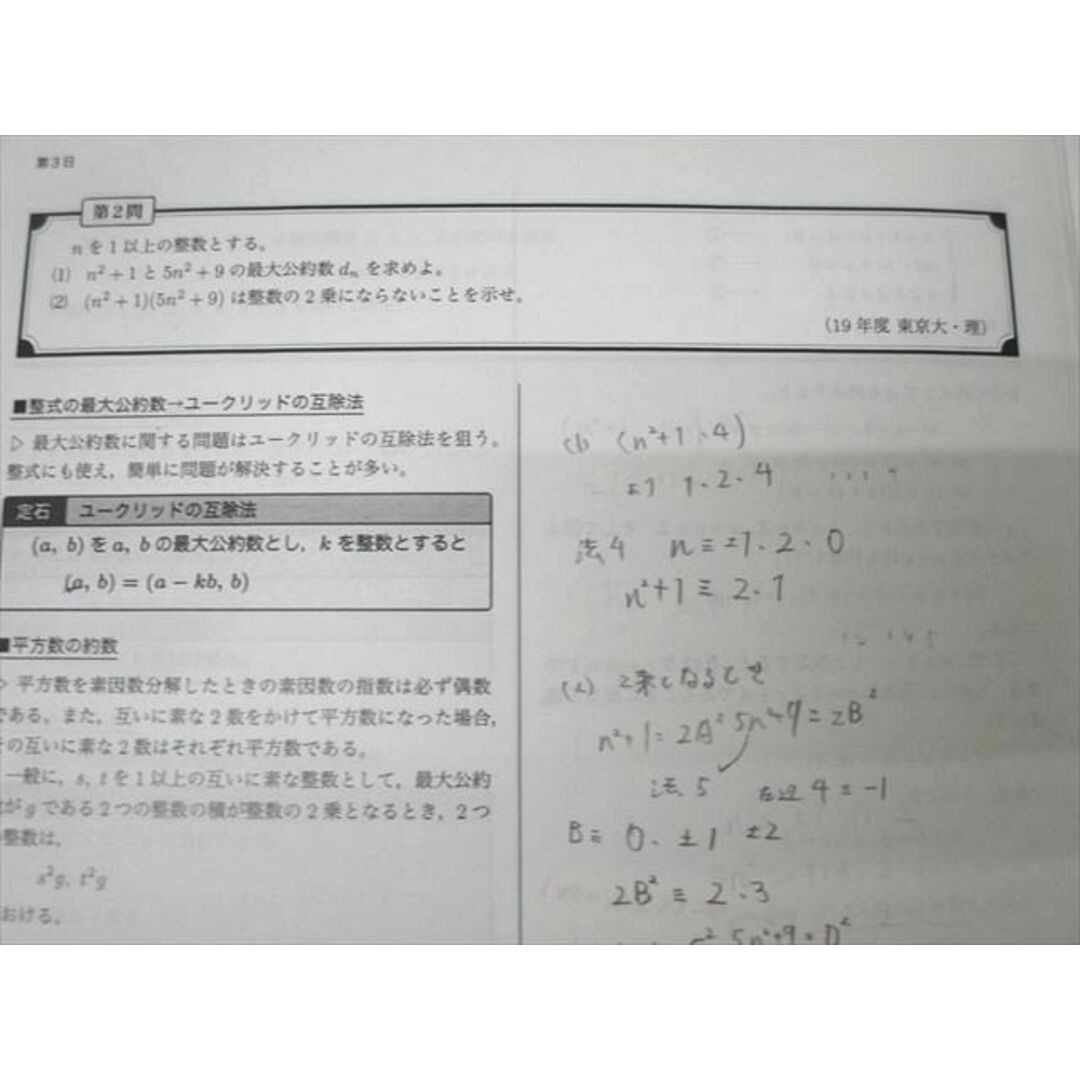 第3日
第2問
nを1以上の整数とする。
(1) n²+1と5n²+9の最大公約数dₙを求めよ。
(2) (n²+1)(5n²+9)は整数の2乗にならないことを示せ。
(19年度 東京大・理)
■整式の最大公約数→ユークリッドの互除法
▷ 最大公約数に関する問題はユークリッドの互除法を狙う。
整式にも使え，簡単に問題が解決することが多い。
定石 ユークリッドの互除法
(a, b)をa, bの最大公約数とし，kを整数とすると
(a, b) = (a − kb, b)
■平方数の約数
▷ 平方数を素因数分解したときの素因数の指数は必ず偶数
である。また，互いに素な2数をかけて平方数になった場合，
その互いに素な2数はそれぞれ平方数である。
一般に，s, tを1以上の互いに素な整数として，最大公約
がgである2つの整数の積が整数の2乗となるとき，2つ
整数は，
s²g, t²g
おける。
(1) (n²+1、4)
より 1、2、4
法4 n≡±1、2、0
n²+1≡2、1
(2) 2乗になるとせ
n²+1=2A² 5n²+9=2B²
法5 左辺4≡-1
B≡0、±1 ±2
2B²≡2、3
5n²+9=D²